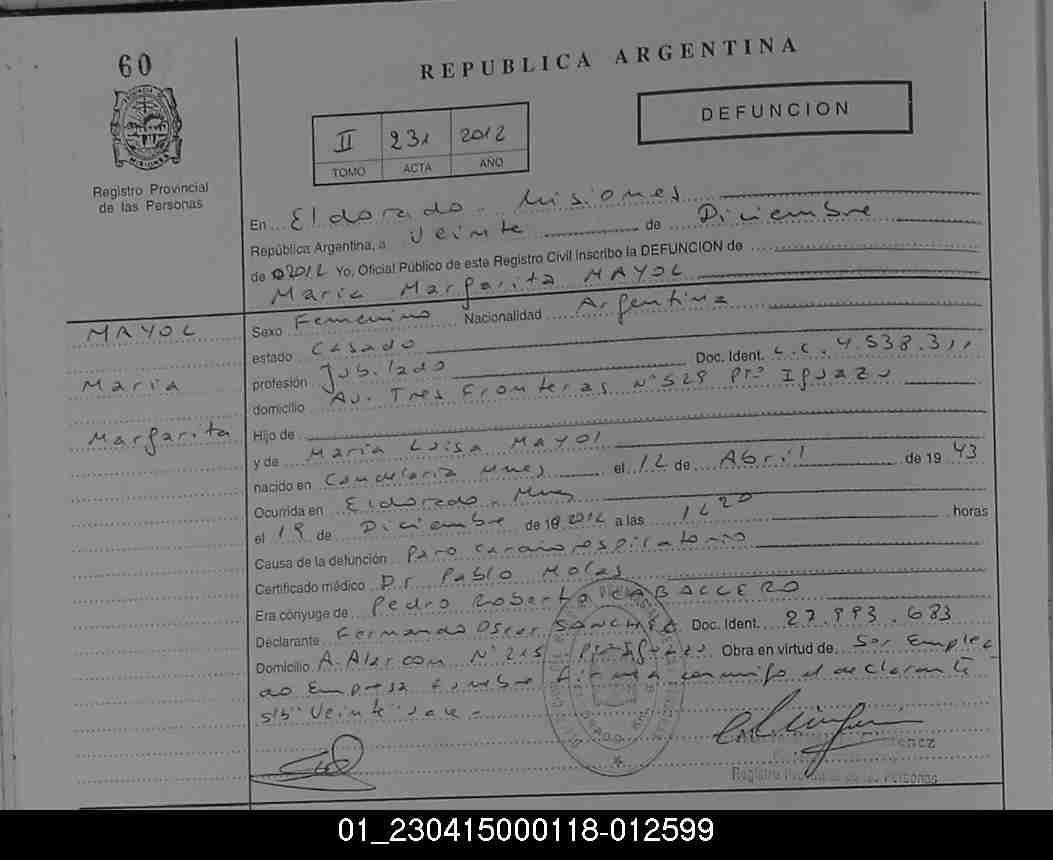 60
REPUBLICA ARGENTINA
DEFUNCION
II 231 2012
TOMO ACTA AÑO
Registro Provincial
de las Personas
En Eldorado. Misiones
República Argentina, a Veinte de Diciembre
de 2012 Yo, Oficial Público de este Registro Civil inscribo la DEFUNCION de
Maria Margarita MAYOL
MAYOL
Maria
Margarita
Sexo Femenino Nacionalidad Argentina
estado Casado
profesión Jubilado Doc. Ident. L.C. 4.538.311
domicilio Av. Tres Fronteras N° 529 Pto Iguazu
Hijo de
y de Maria Luisa MAYOL
nacido en Candelaria Mnes el 12 de Abril de 19 43
Ocurrida en Eldorado. Mnes
el 19 de Diciembre de 2012 a las horas
Causa de la defunción Paro cardiorespiratorio
Certificado médico Dr Pablo Molas
Era cónyuge de Pedro Roberto CABALLERO
Declarante Fernando Oscar SANCHEZ Doc. Ident. 27.993.683
Domicilio A. Alarcon N° 215 Obra en virtud de Ser Emplea
do Empresa Funebre firma conmigo el declarante
s/b "Veinte"
Registro Provincial de las Personas
01_230415000118-012599